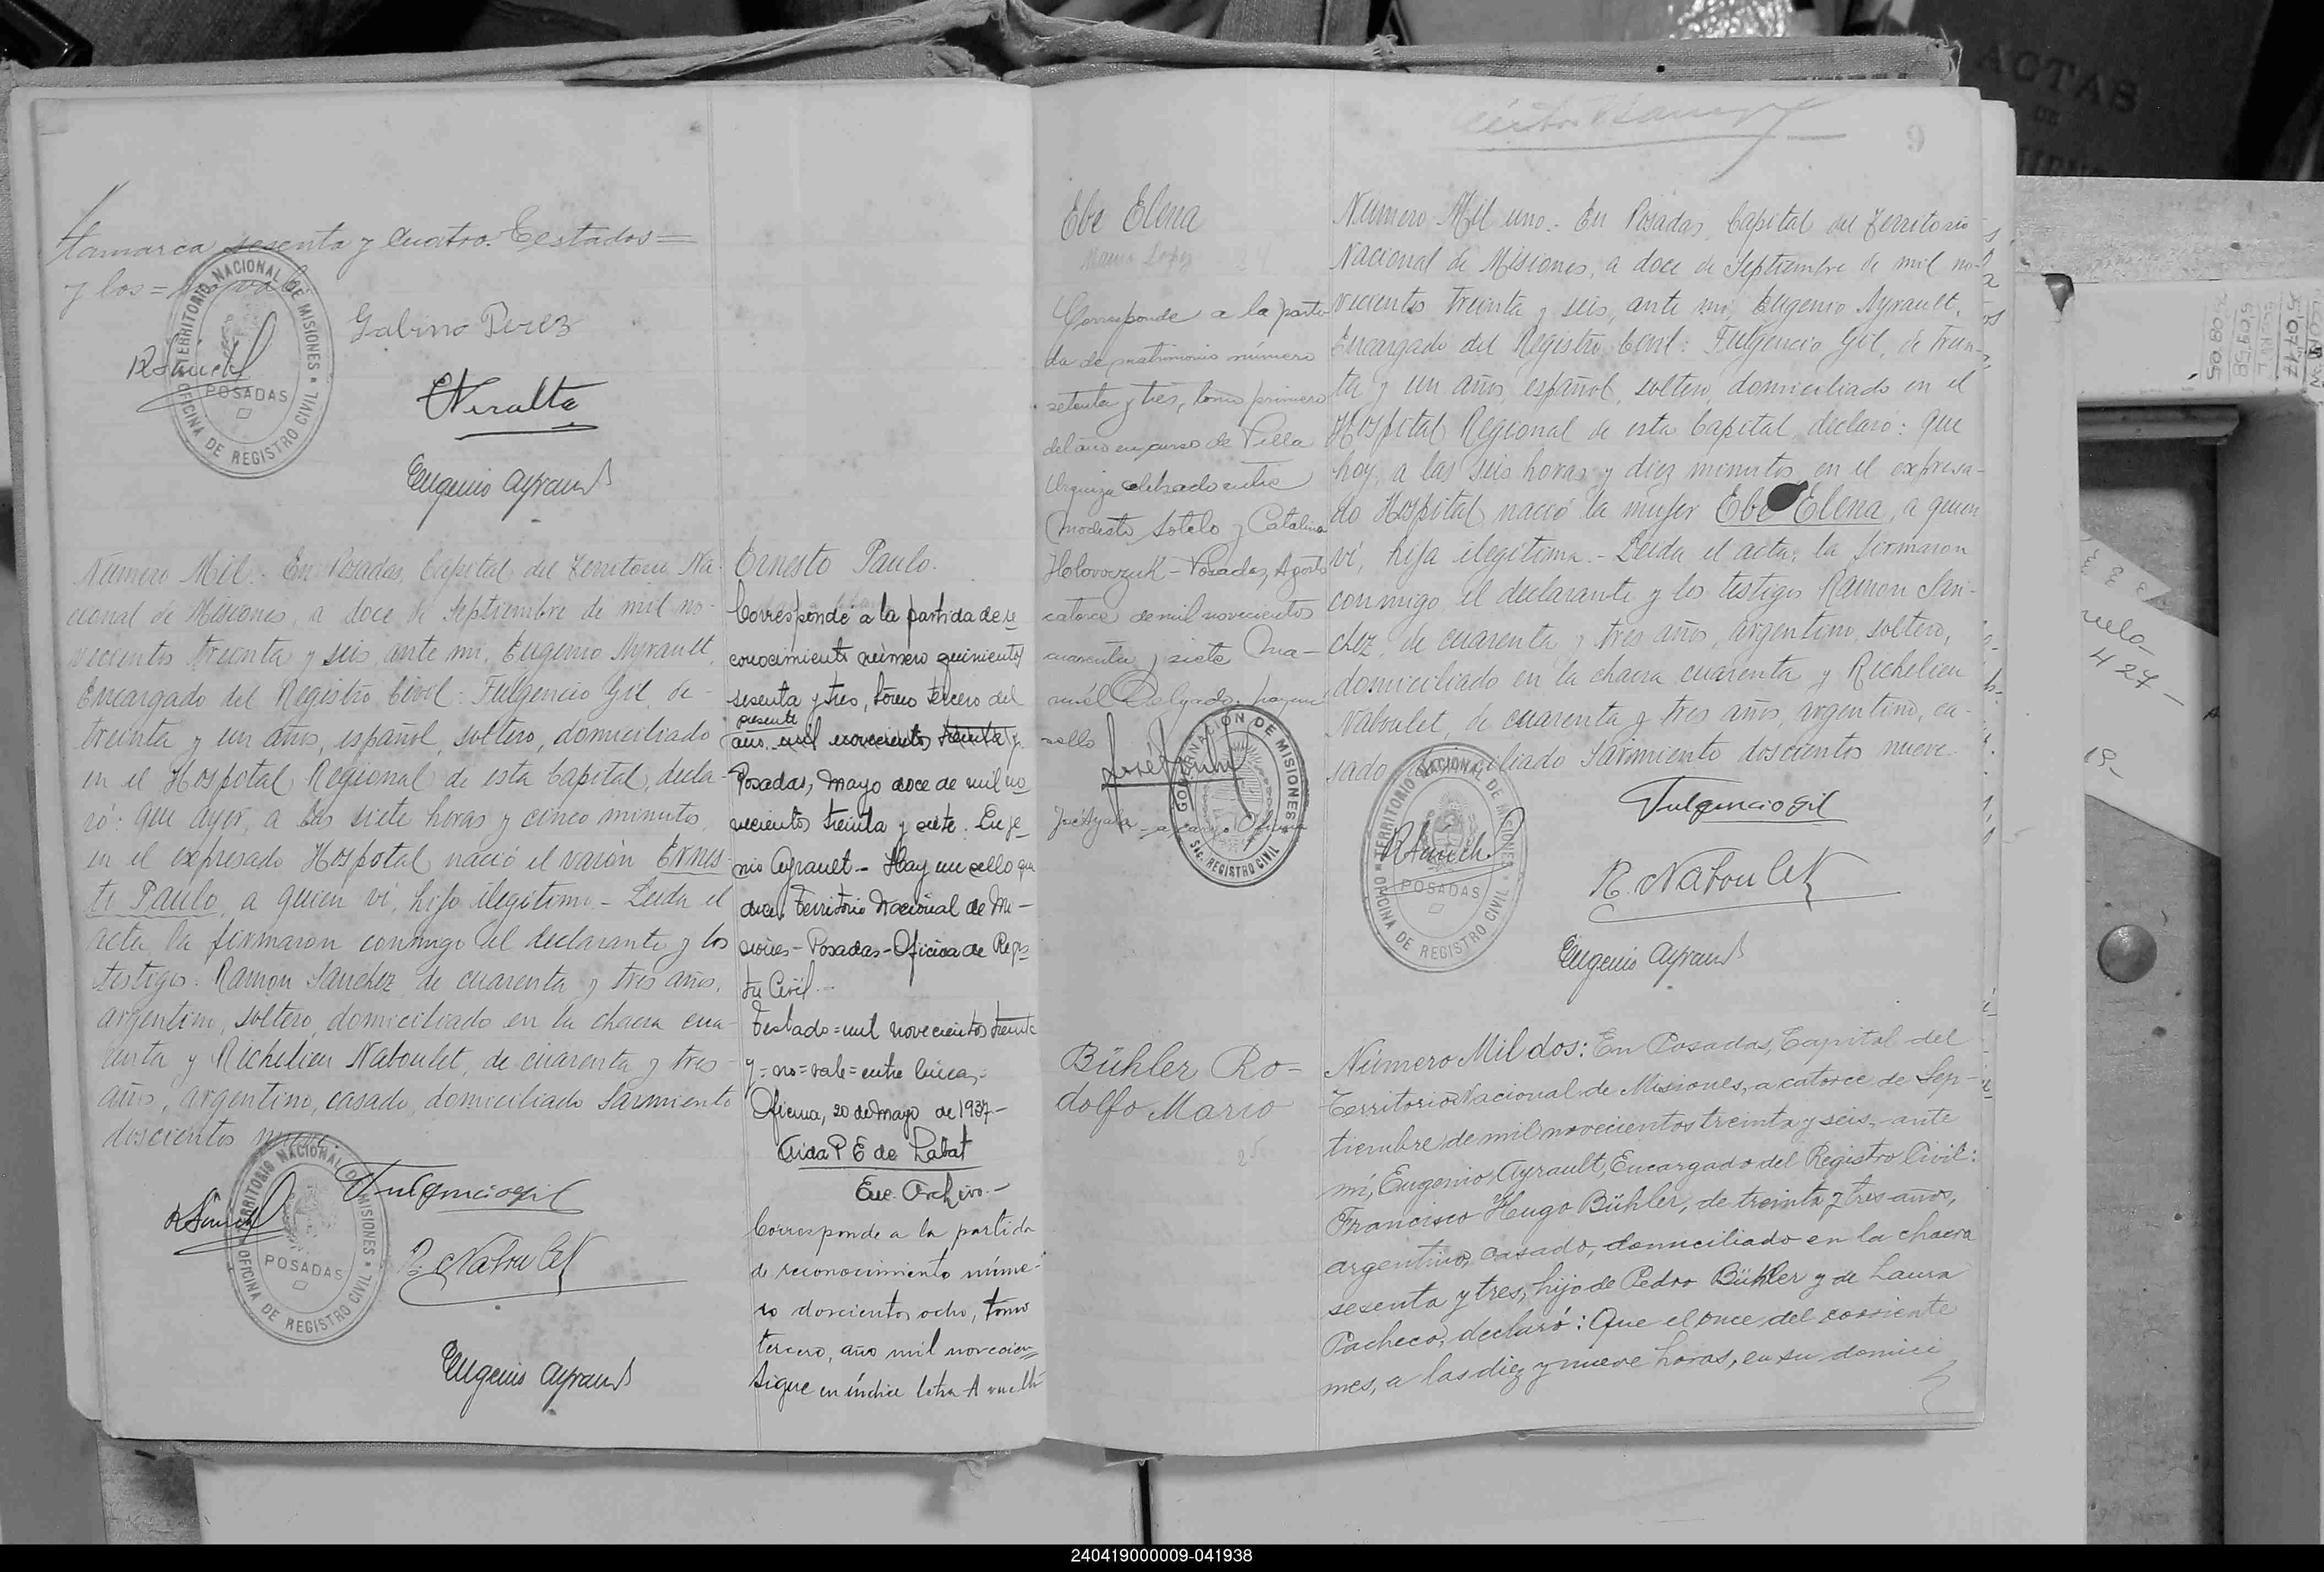 tamarca sesenta y cuatro. Testados=
y los= no vale
TERRITORIO NACIONAL DE MISIONES
POSADAS
OFICINA DE REGISTRO CIVIL
RSanch
Gabino Perez
Eugenio Ayrault
Número Mil.- En Posadas, Capital del Territorio Na-
cional de Misiones, a doce de Septiembre de mil no-
vecientos treinta y seis, ante mi, Eugenio Ayrault,
Encargado del Registro Civil: Fulgencio Gil, de-
treinta y un años, español, soltero, domiciliado
en el Hospital Regional de esta Capital, decla-
ró: que ayer, a las siete horas y cinco minutos,
en el expresado Hospotal nació el varón Ernes-
to Paulo, a quien ví, hijo ilegítimo.- Leida el
acta, la firmaron conmigo el declarante y los
testigos: Ramon Sanchez, de cuarenta y tres años,
argentino, soltero, domiciliado en la chacra cua-
renta y Richelieu Naboulet, de cuarenta y tres
años, argentino, casado, domiciliado Sarmiento
doscientos nueve.
TERRITORIO NACIONAL DE MISIONES
POSADAS
OFICINA DE REGISTRO CIVIL
RSanch
Fulgencio Gil
R. Naboulet
Eugenio Ayrault
Ernesto Paulo.
Corresponde a la partida de re
conocimiento número quinientos
sesenta y tres, tomo tercero del
presente
año mil novecientos treinta y
Posadas, Mayo doce de mil no
vecientos treinta y siete. Euge
nio Ayrault- Hay un sello que
dice: Territorio Nacional de Mi-
siones- Posadas- Oficina de Regis
tro Civil.-
Testado=mil novecientos treinta
y=no=vale=entre lineas,=
Oficina, 20 de Mayo de 1937-
Aida P E de Labat
Enc. Archivo.-
Corresponde a la partida
de reconocimiento núme-
ro doscientos ocho, tomo
tercero, año mil novecien=
Sigue en índice letra A vuelta
9
Ebe Elena
Maria Lopez 24
Corresponde a la parti-
da de matrimonio número
setenta y tres, tomo primero
del año en curso de Villa
Urquiza celebrado entre
Modesto Sotelo y Catalina
Holovaczuk- Posadas, Agosto
catorce de mil novecientos
cuarenta y siete Ma-
nuél Delgado. hay un
sello
GOBERNACION DE MISIONES
SEC. REGISTRO CIVIL
José Ayala - a cargo Oficina
Número Mil uno.- En Posadas, Capital del Territorio
Nacional de Misiones, a doce de Septiembre de mil no-
vecientos treinta y seis, ante mi, Eugenio Ayrault,
Encargado del Registro Civil: Fulgencio Gil, de trein-
ta y un años, español, soltero, domiciliado en el
Hospital Regional de esta Capital, declaró: que
hoy, a las seis horas y diez minutos, en el expresa-
do Hospital nació la mujer Ebe Elena, a quien
ví, hija ilegítima.- Leida el acta, la firmaron
conmigo, el declarante y los testigos Ramon San-
chez, de cuarenta y tres años, argentino, soltero,
domiciliado en la chacra cuarenta y Richelieu
Naboulet, de cuarenta y tres años, argentino, ca-
sado, domiciliado Sarmiento doscientos nueve.
TERRITORIO NACIONAL DE MISIONES
POSADAS
OFICINA DE REGISTRO CIVIL
RSanch
Fulgencio Gil
R. Naboulet
Eugenio Ayrault
Bühler Ro=
dolfo Mario
25
Número Mil dos: En Posadas, Capital del
Territorio Nacional de Misiones, a catorce de Sep-
tiembre de mil novecientos treinta y seis, ante
mí, Eugenio Ayrault, Encargado del Registro Civil:
Francisco Hugo Bühler, de treinta y tres años,
argentino, casado, domiciliado en la chacra
sesenta y tres, hijo de Pedro Bühler y de Laura
Pacheco, declaró: Que el once del corriente
mes, a las diez y nueve horas, en su domici
ACTAS
DE
427-
19-
240419000009-041938